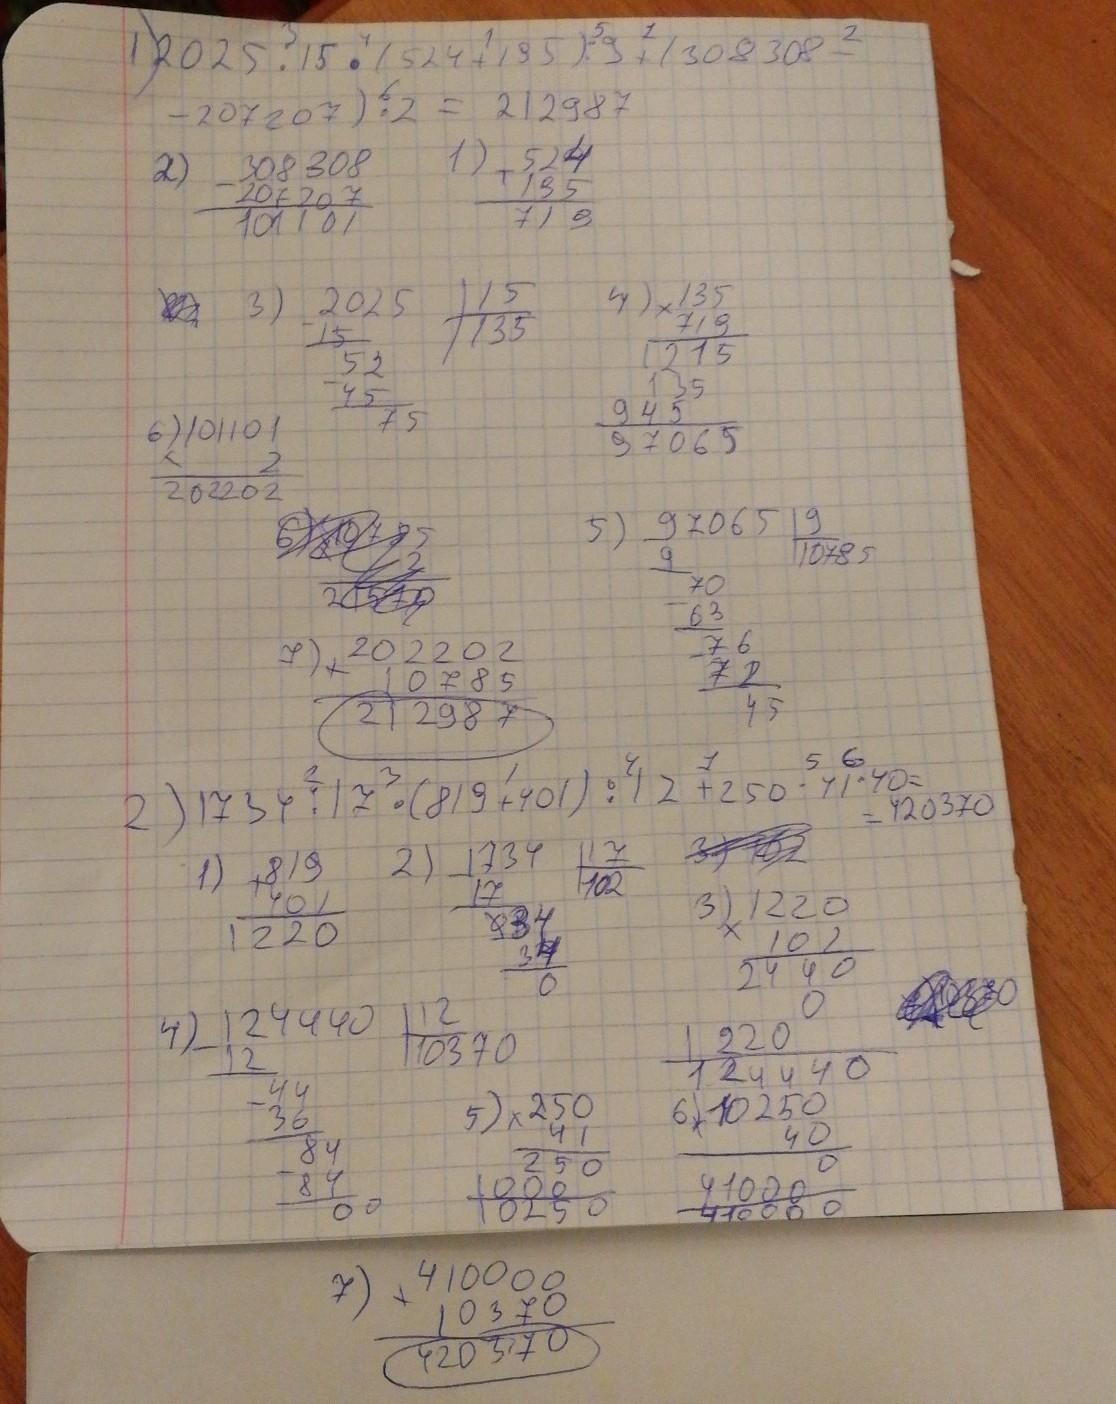 1) 2025 : 15 · (524 + 195) : 9 + (308308 -
3 4 1 5 7 2
- 207207) : 2 = 212987
6
2) - 308308
207207
101101
1) + 524
195
719
3) - 2025 | 15
15 | 135
52
- 45
75
4) × 135
719
1215
135
945
97065
6) 101101
× 2
202202
5) 97065 | 9
9 | 10785
70
- 63
- 76
72
45
7) + 202202
10785
212987
2) 1734 : 17 · (819 + 401) : 12 + 250 · 41 · 40 =
2 3 1 4 7 5 6
= 420370
1) + 819
401
1220
2) - 1734 | 17
17 | 102
34
34
0
3) × 1220
102
2440
0
1220
124440
4) - 124440 | 12
12 | 10370
- 44
36
84
- 84
00
5) × 250
41
250
1000
10250
6) × 10250
40
0
41000
410000
7) + 410000
10370
420370